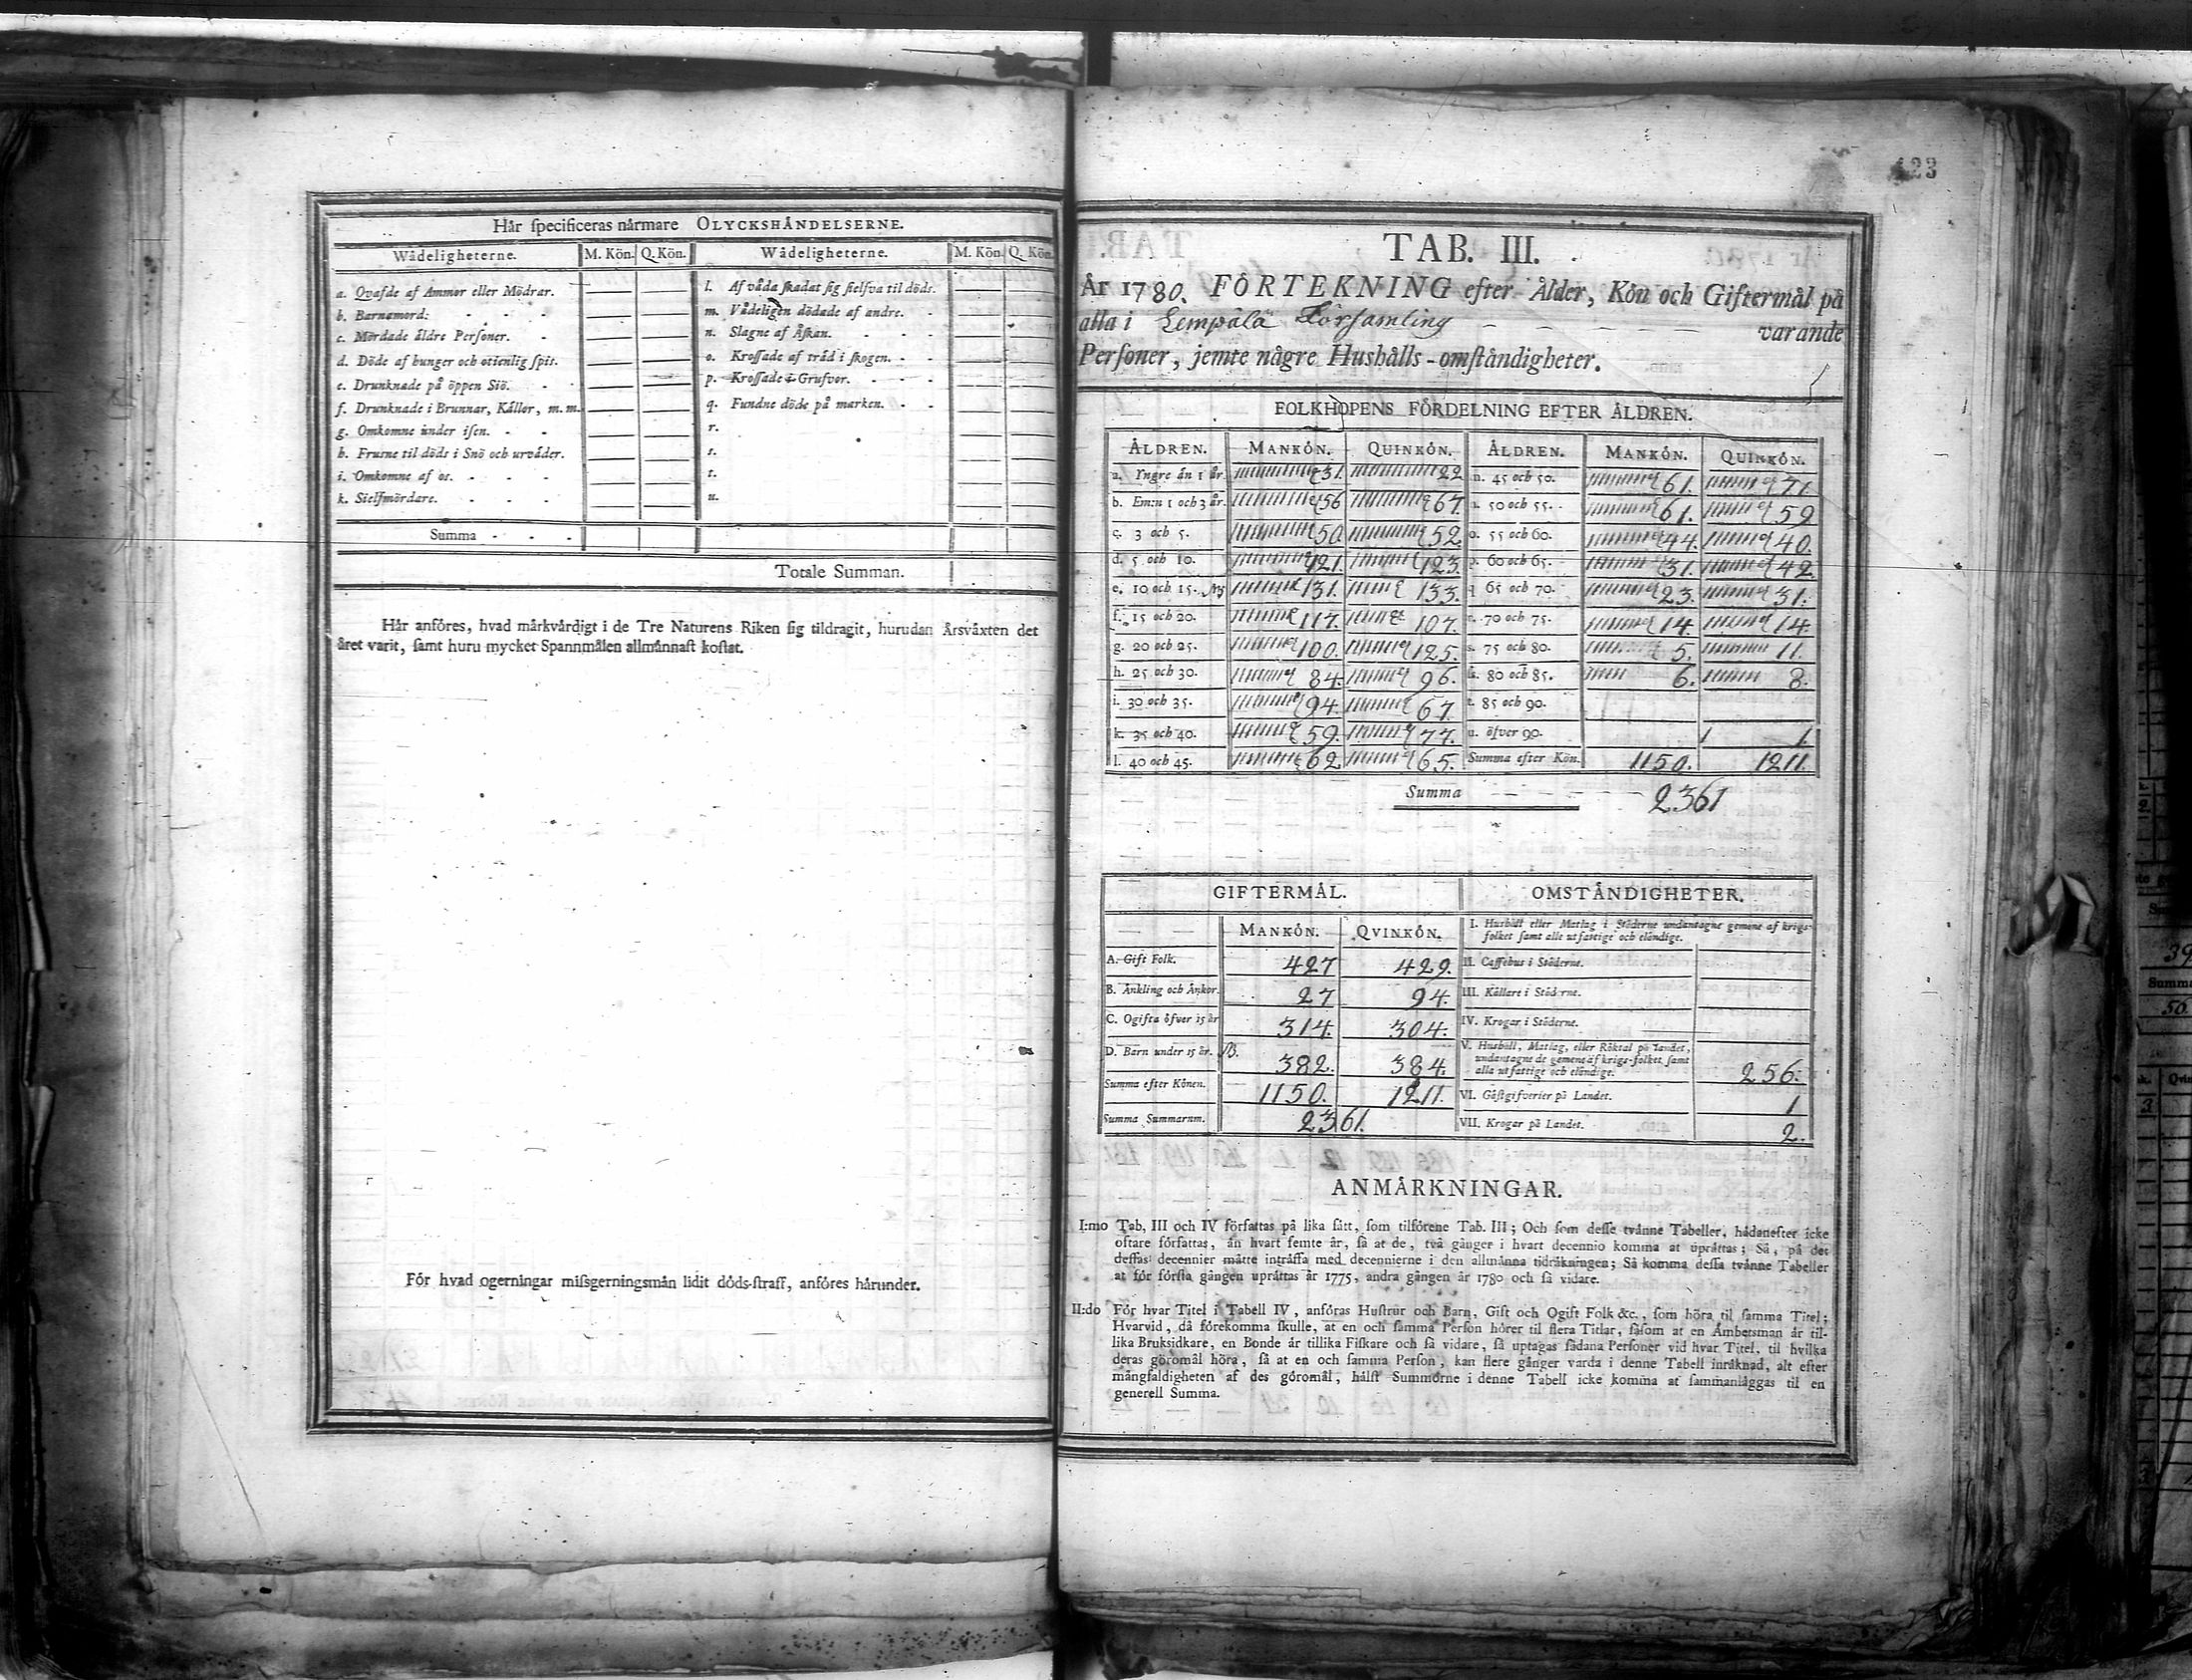 Här specificeras närmare OLYCKSHÄNDELSERNE.
Wådeligheterne. M. Kön. Q. Kön. Wådeligheterne. M. Kön. Q. Kön.
a. Qvafde af Ammor eller Mödrar. l. Af våda skadat sig sielfva til döds.
b. Barnamord: m. Vådeligen dödade af andre.
c. Mördade äldre Personer. n. Slagne af Åskan.
d. Döde af hunger och otienlig spis. o. Krossade af träd i skogen.
e. Drunknade på öppen Siö. p. Krossade i Grufvor.
f. Drunknade i Brunnar, Källor, m. m. q. Fundne döde på marken.
g. Omkomne under isen. r.
h. Frusne til döds i Snö och urväder. s.
i. Omkomne af os. t.
k. Sielfmördare. u.
Summa
Totale Summan.
Här anföres, hvad märkvärdigt i de Tre Naturens Riken sig tildragit, hurudan Årsväxten det
året varit, samt huru mycket Spannmålen allmännast kostat.
För hvad ogerningar missgerningsmän lidit döds-straff, anföres härunder.
123
TAB. III.
År 1780. FÖRTEKNING efter Ålder, Kön och Giftermål på
alla i Lempälä Församling varande
Personer, jemte någre Hushålls-omständigheter.
FOLKHOPENS FÖRDELNING EFTER ÅLDREN.
ÅLDREN. MANKÖN. QUINKÖN. ÅLDREN. MANKÖN. QUINKÖN.
a. Yngre än 1 år 31. 22 n. 45 och 50. 61. 71.
b. Em:n 1 och 3 år. 56 67. 50 och 55. 61. 59
c. 3 och 5. 50 52. o. 55 och 60. 44. 40.
d. 5 och 10. 121. 123. p. 60 och 65. 31. 42
e. 10 och 15. 131. 133. q 65 och 70. 23. 31.
f. 15 och 20. 117. 107. 70 och 75. 14. 14.
g. 20 och 25. 100. 125. s. 75 och 80. 5. 11.
h. 25 och 30. 84. 96. 80 och 85. 6. 8.
i. 30 och 35. 94. 67. t. 85 och 90.
k. 35 och 40. 59. 77. u. öfver 90. 1.
l. 40 och 45. 62 65. Summa efter Kön. 1150. 1211.
Summa 2361
GIFTERMÅL. OMSTÄNDIGHETER.
MANKÖN. QVINKÖN. I. Hushåll eller Matlag i Städerne undantagne gemene af krigs-
folket samt alle utfattige och eländige.
A. Gift Folk. 427 429. II. Caffehus i Städerne.
B. Änkling och Änkor. 27 94. III. Källare i Städerne.
C. Ogifta öfver 15 år 314. 304. IV. Krogar i Städerne.
D. Barn under 15 år. 382. 384. V. Hushåll, Matlag, eller Röktal på Landet,
undantagne de gemene af krigs-folket samt
alla utfattige och eländige. 256.
Summa efter Könen. 1150. 1211. VI. Gästgifverier på Landet. 1
Summa Summarum. 2361. VII. Krogar på Landet. 2.
ANMÄRKNINGAR.
I:mo Tab. III och IV författas på lika sätt, som tilförene Tab. III; Och som desse tvänne Tabeller, hädanefter icke
oftare författas, än hvart femte år, så at de, två gånger i hvart decennio komma at upråttas; Så, på det
dessas decennier måtte inträffa med decennierne i den allmänna tidräkningen; Så komma dessa tvänne Tabeller
at för första gången uprättas år 1775, andra gången år 1780 och så vidare.
II:do För hvar Titel i Tabell IV, anföras Hustrur och Barn, Gift och Ogift Folk &c., som höra til samma Titel;
Hvarvid, då förekomma skulle, at en och samma Person hörer til flera Titlar, såsom at en Ämbetsman är til-
lika Bruksidkare, en Bonde är tillika Fiskare och så vidare, så uptagas sådana Personer vid hvar Titel, til hvilka
deras göromål höra, så at en och samma Person, kan flere gånger varda i denne Tabell inräknad, alt efter
mångfaldigheten af des göromål, hälst Summorne i denne Tabell icke komma at sammanläggas til en
generell Summa.